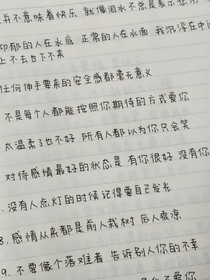 并不意味着快乐 就像泪水不总是表示悲伤
抑郁的人在水底 正常的人在水面 我沉浮在中间
上不去也下不来
任何伸手要来的安全感都毫无意义
不是每个人都能按照你期待的方式爱你
太温柔了也不好 所有人都认为你只会笑
对待感情最好的状态是 有你很好 没有你
没有人点灯的时候记得要自己发光
8. 感情从来都是前人栽树 后人乘凉
9. 不要做个落难者 告诉别人你的不幸